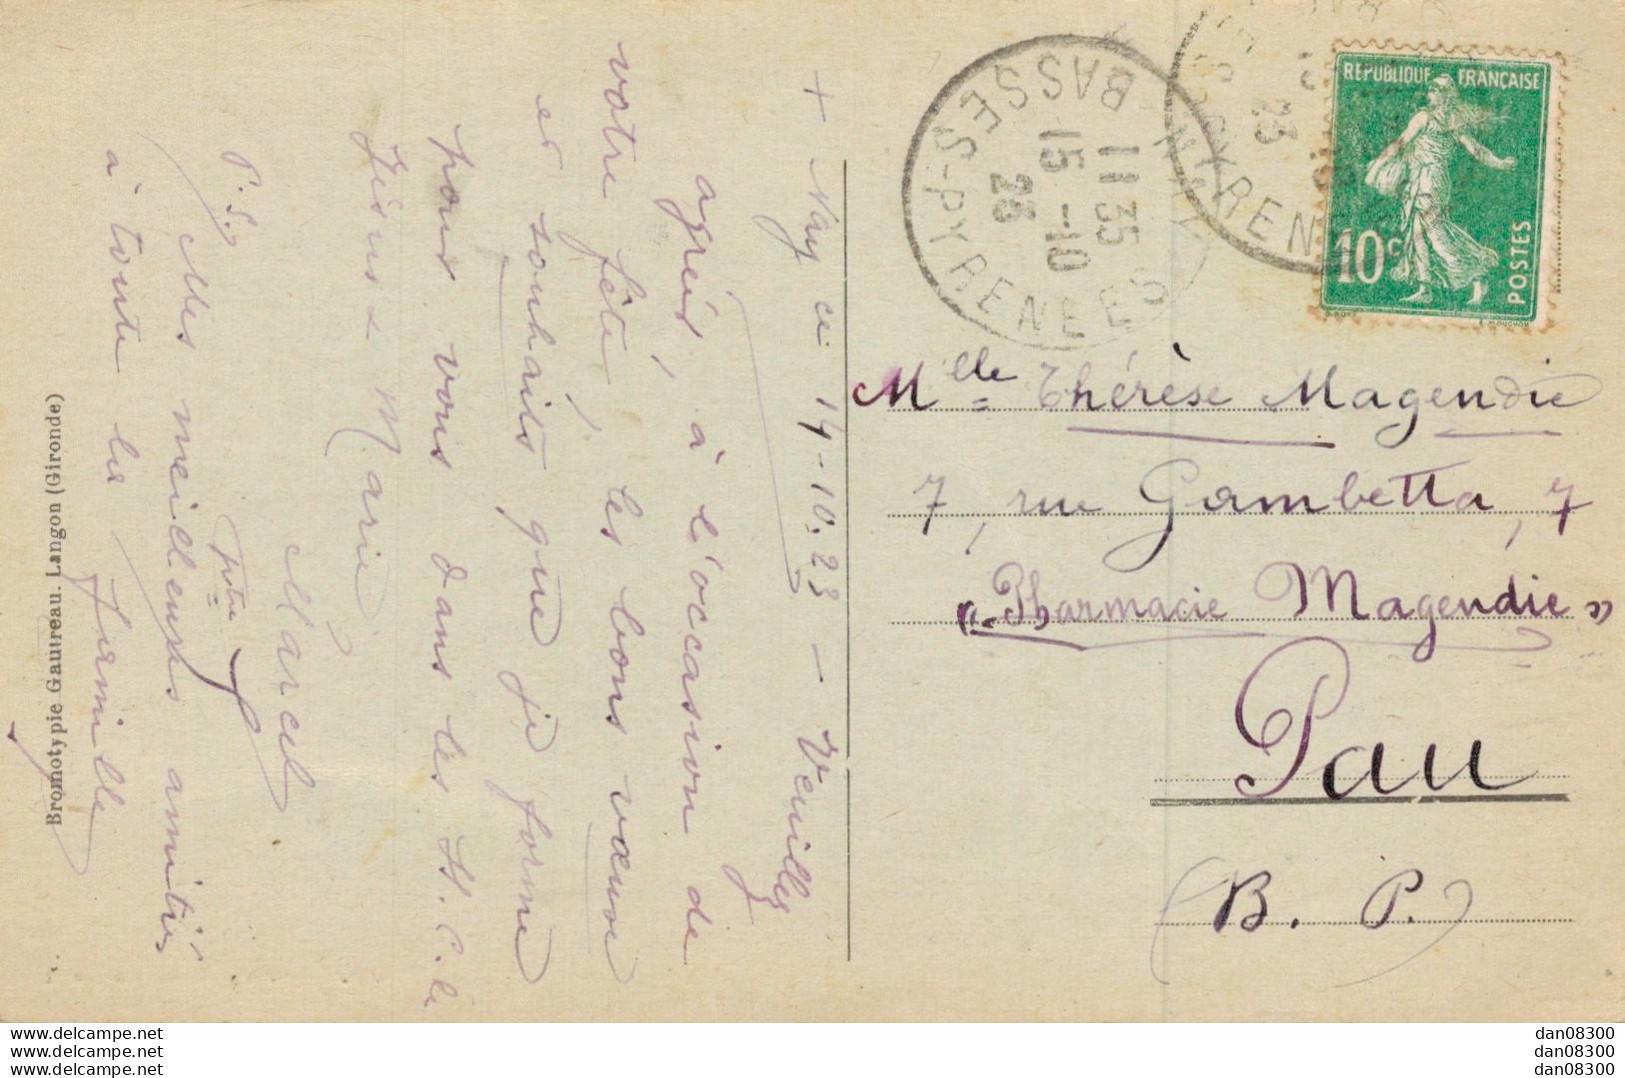 + Nay ce 14-10.23 – Veuillez
agréer, à l'occasion de
votre fête, les bons vœux
et souhaits que je forme
pour vous dans les H. C. de
Jésus & Marie
Marcel
P.S. ptre
Mes meilleures amitiés
à toute la famille
Bromotypie Gautreau. Langon (Gironde)
NAY
11 35
15 -10
23
BASSES-PYRENEES
23
PYRENEES
REPUBLIQUE FRANÇAISE
10c
POSTES
Mlle Thérèse Magendie
7, rue Gambetta, 7
"Pharmacie Magendie"
Pau
(B. P.)
www.delcampe.net
www.delcampe.net
www.delcampe.net
dan08300
dan08300
dan08300